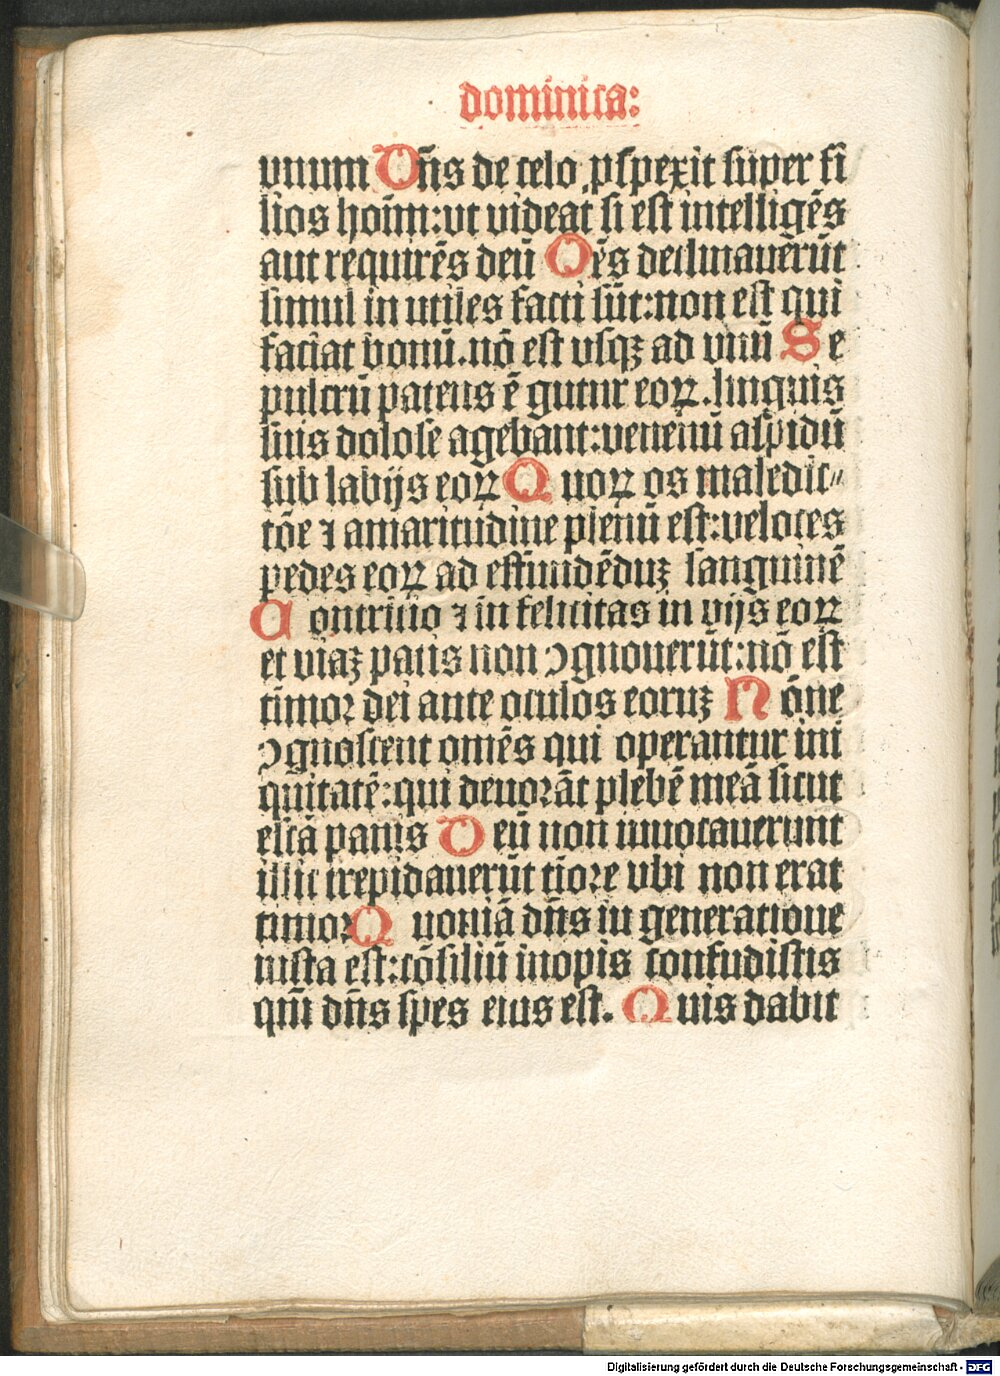 dominica:
vnum Dn̄s de celo ꝓspexit super fi
lios hoīm: vt videat si est intelligēs
aut requirēs deū Oēs declinauerūt
simul in utiles facti sūt: non est qui
faciat bonū. nō est vsqꝫ ad vnū Se
pulcrū patens ē guttur eoꝝ. linguis
suis dolose agebant: venenū aspidū
sub labijs eoꝝ Quoꝝ os maledic⸗
tōe ⁊ amaritudine plenū est: veloces
pedes eoꝝ ad effundēduꝫ sanguinē
Contritio ⁊ in felicitas in vijs eoꝝ
et viaꝫ pacis non ꝯgnouerūt: nō est
timor dei ante oculos eoruꝫ Nōne
ꝯgnoscent omēs qui operantur ini
quitatē: qui deuorāt plebē meā sicut
escā panis Deū non inuocauerunt
illic trepidauerūt tīore vbi non erat
timor Quoniā dn̄s in generatione
iusta est: cōsiliū inopis confudistis
qm̄ dn̄s spes eius est. Quis dabit
Digitalisierung gefördert durch die Deutsche Forschungsgemeinschaft - DFG